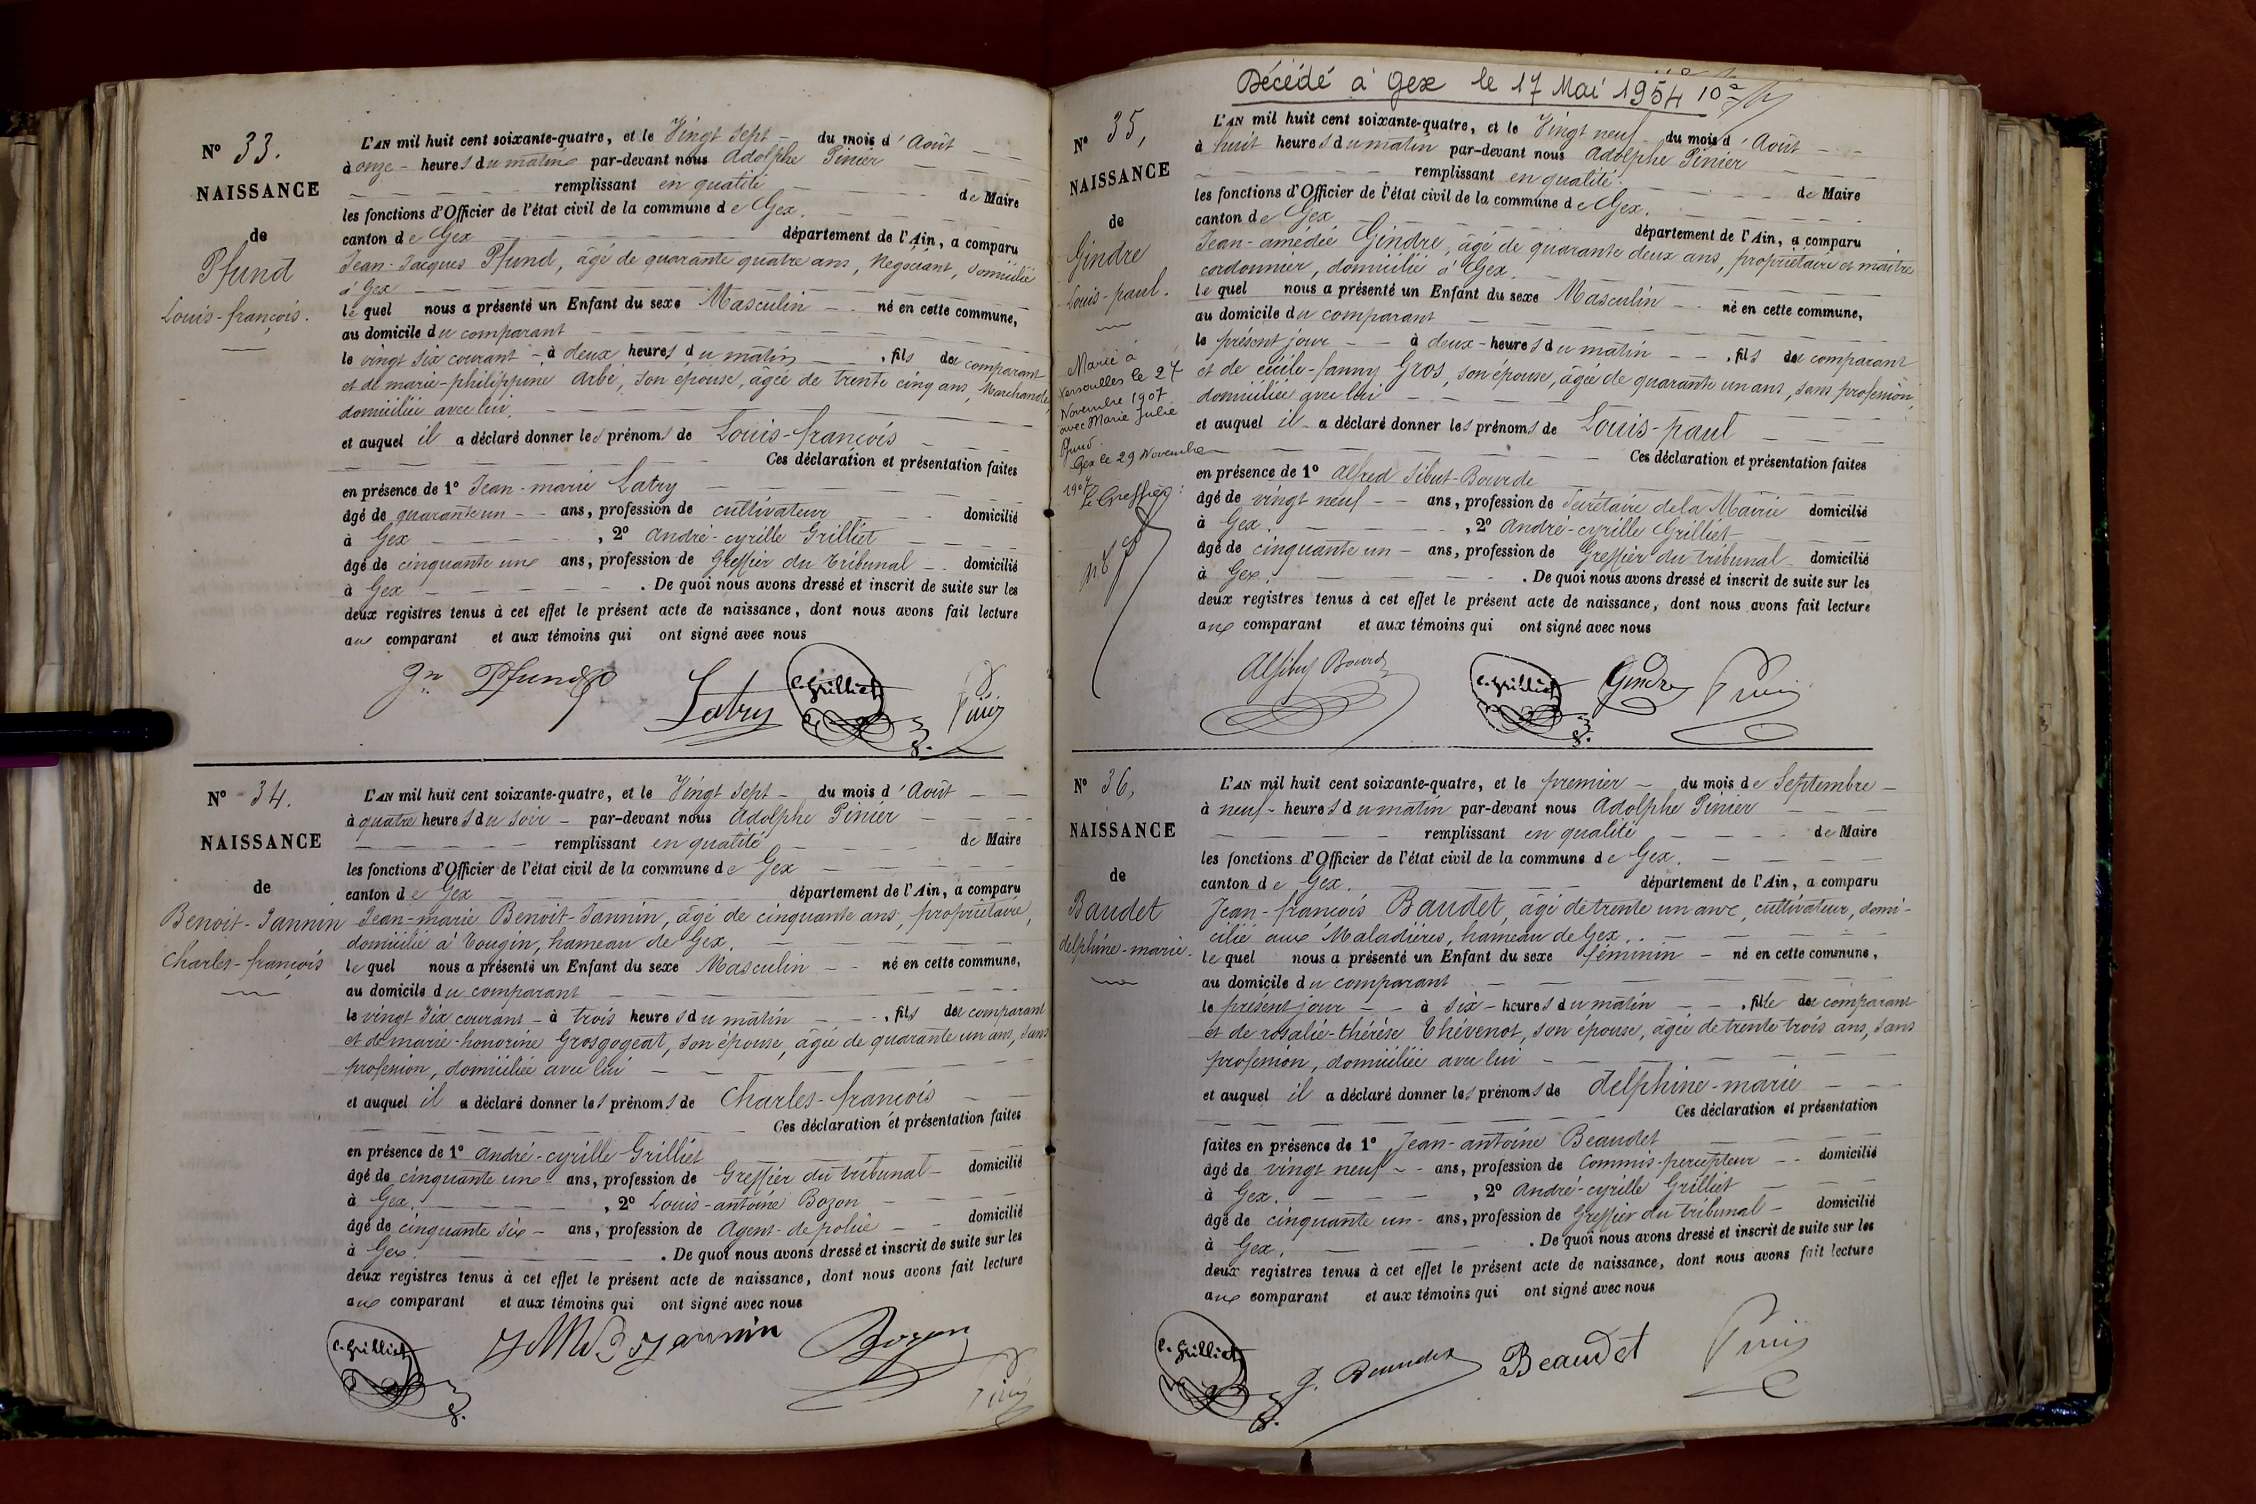 N° 33.
NAISSANCE
de
Pfund
Louis-françois.
L'AN mil huit cent soixante-quatre, et le Vingt sept du mois d'Août
à onze heures du matin par-devant nous Adolphe Pinier
remplissant en qualité de Maire
les fonctions d'Officier de l'état civil de la commune de Gex.
canton de Gex département de l'Ain, a comparu
Jean-Jacques Pfund, âgé de quarante quatre ans, Négociant, domicilié
à Gex
lequel nous a présenté un Enfant du sexe Masculin né en cette commune,
au domicile du comparant
le vingt six courant à deux heures du matin, fils du comparant
et de marie-philippine Arbé, son épouse, âgée de trente cinq ans, Marchande,
domiciliée avec lui.
et auquel il a déclaré donner les prénoms de Louis-françois
Ces déclaration et présentation faites
en présence de 1° Jean-marie Latry
âgé de quarante un ans, profession de cultivateur domicilié
à Gex, 2° André-cyrille Grilliet
âgé de cinquante un ans, profession de Greffier du tribunal domicilié
à Gex. De quoi nous avons dressé et inscrit de suite sur les
deux registres tenus à cet effet le présent acte de naissance, dont nous avons fait lecture
au comparant et aux témoins qui ont signé avec nous
Jn Pfund Latry C. Grilliet Pinier
N° 34.
NAISSANCE
de
Benoit-Jannin
Charles-françois
L'AN mil huit cent soixante-quatre, et le Vingt sept du mois d'Août
à quatre heures du soir par-devant nous Adolphe Pinier
remplissant en qualité de Maire
les fonctions d'Officier de l'état civil de la commune de Gex
canton de Gex département de l'Ain, a comparu
Jean-marie Benoit-Jannin, âgé de cinquante ans, propriétaire,
domicilié à Tougin, hameau de Gex.
lequel nous a présenté un Enfant du sexe Masculin né en cette commune,
au domicile du comparant
le vingt six courant à trois heures du matin, fils du comparant
et de marie-honorine Grosgogeat, son épouse, âgée de quarante un ans, sans
profession, domiciliée avec lui
et auquel il a déclaré donner les prénoms de Charles-françois
Ces déclaration et présentation faites
en présence de 1° André-cyrille Grilliet
âgé de cinquante un ans, profession de Greffier du tribunal domicilié
à Gex., 2° Louis-antoine Bozon
âgé de cinquante six ans, profession de Agent de police domicilié
à Gex. De quoi nous avons dressé et inscrit de suite sur les
deux registres tenus à cet effet le présent acte de naissance, dont nous avons fait lecture
au comparant et aux témoins qui ont signé avec nous
C. Grilliet Jannin Bozon Pinier
Décédé à Gex le 17 Mai 1954
N° 35,
NAISSANCE
de
Gindre
Louis-paul.
Marié à
Versoulles le 27
Novembre 1907
avec Marie Julie
Pfund
Gex le 29 Novembre
1907
Le Greffier:
L'AN mil huit cent soixante-quatre, et le Vingt neuf du mois d'Août
à huit heures du matin par-devant nous Adolphe Pinier
remplissant en qualité de Maire
les fonctions d'Officier de l'état civil de la commune de Gex.
canton de Gex département de l'Ain, a comparu
Jean-amédée Gindre, âgé de quarante deux ans, propriétaire et maître
cordonnier, domicilié à Gex.
lequel nous a présenté un Enfant du sexe Masculin né en cette commune,
au domicile du comparant
le présent jour à deux heures du matin, fils du comparant
et de cécile-fanny Gros, son épouse, âgée de quarante un ans, sans profession,
domiciliée avec lui
et auquel il a déclaré donner les prénoms de Louis-paul
Ces déclaration et présentation faites
en présence de 1° Alfred Sibut-Bourde
âgé de vingt neuf ans, profession de Secrétaire de la Mairie domicilié
à Gex., 2° André-cyrille Grilliet
âgé de cinquante un ans, profession de Greffier du tribunal domicilié
à Gex. De quoi nous avons dressé et inscrit de suite sur les
deux registres tenus à cet effet le présent acte de naissance, dont nous avons fait lecture
au comparant et aux témoins qui ont signé avec nous
C. Grilliet Gindre Pinier
N° 36,
NAISSANCE
de
Baudet
delphine-marie.
L'AN mil huit cent soixante-quatre, et le premier du mois de Septembre
à neuf heures du matin par-devant nous Adolphe Pinier
remplissant en qualité de Maire
les fonctions d'Officier de l'état civil de la commune de Gex.
canton de Gex. département de l'Ain, a comparu
Jean-françois Baudet, âgé de trente un ans, cultivateur, domi-
cilié aux Maladières, hameau de Gex.
lequel nous a présenté un Enfant du sexe féminin né en cette commune,
au domicile du comparant
le présent jour à six heures du matin, fille du comparant
et de rosalie-thérèse Thévenot, son épouse, âgée de trente trois ans, sans
profession, domiciliée avec lui
et auquel il a déclaré donner les prénoms de delphine-marie
Ces déclaration et présentation
faites en présence de 1° Jean-antoine Beaudet
âgé de vingt neuf ans, profession de Commis-percepteur domicilié
à Gex., 2° André-cyrille Grilliet
âgé de cinquante un ans, profession de Greffier du tribunal domicilié
à Gex. De quoi nous avons dressé et inscrit de suite sur les
deux registres tenus à cet effet le présent acte de naissance, dont nous avons fait lecture
au comparant et aux témoins qui ont signé avec nous
C. Grilliet J. Beaudet Beaudet Pinier